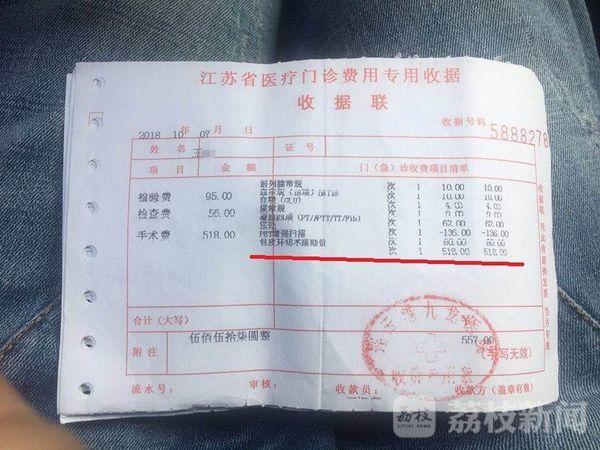 江苏省医疗门诊费用专用收据
收据联
2018 年 10 月 07 日
收据号码 5888278
姓名 王
证号
项目 金额 门(急)诊收费项目清单
前列腺常规 次 1 10.00 10.00
检验费 95.00
次 1 10.00 10.00
次 1 4.00 4.00
尿常规
检查费 56.00
凝血四项(PT/APTT/TT/Fib) 次 1 62.00 62.00
手术费 518.00
增强扫描 次 1 -136.00 -136.00
包皮环切术援助价 次 1 60.00 60.00
次 1 518.00 518.00
收据联 凭此收据换发票 当月有效
合计(大写)
伍佰伍拾柒圆整 557.00
附注 (手写无效)
九龙
收费专用章
流水号: 审核: 收款员: 收款方(盖章有效)
荔枝
荔枝新闻